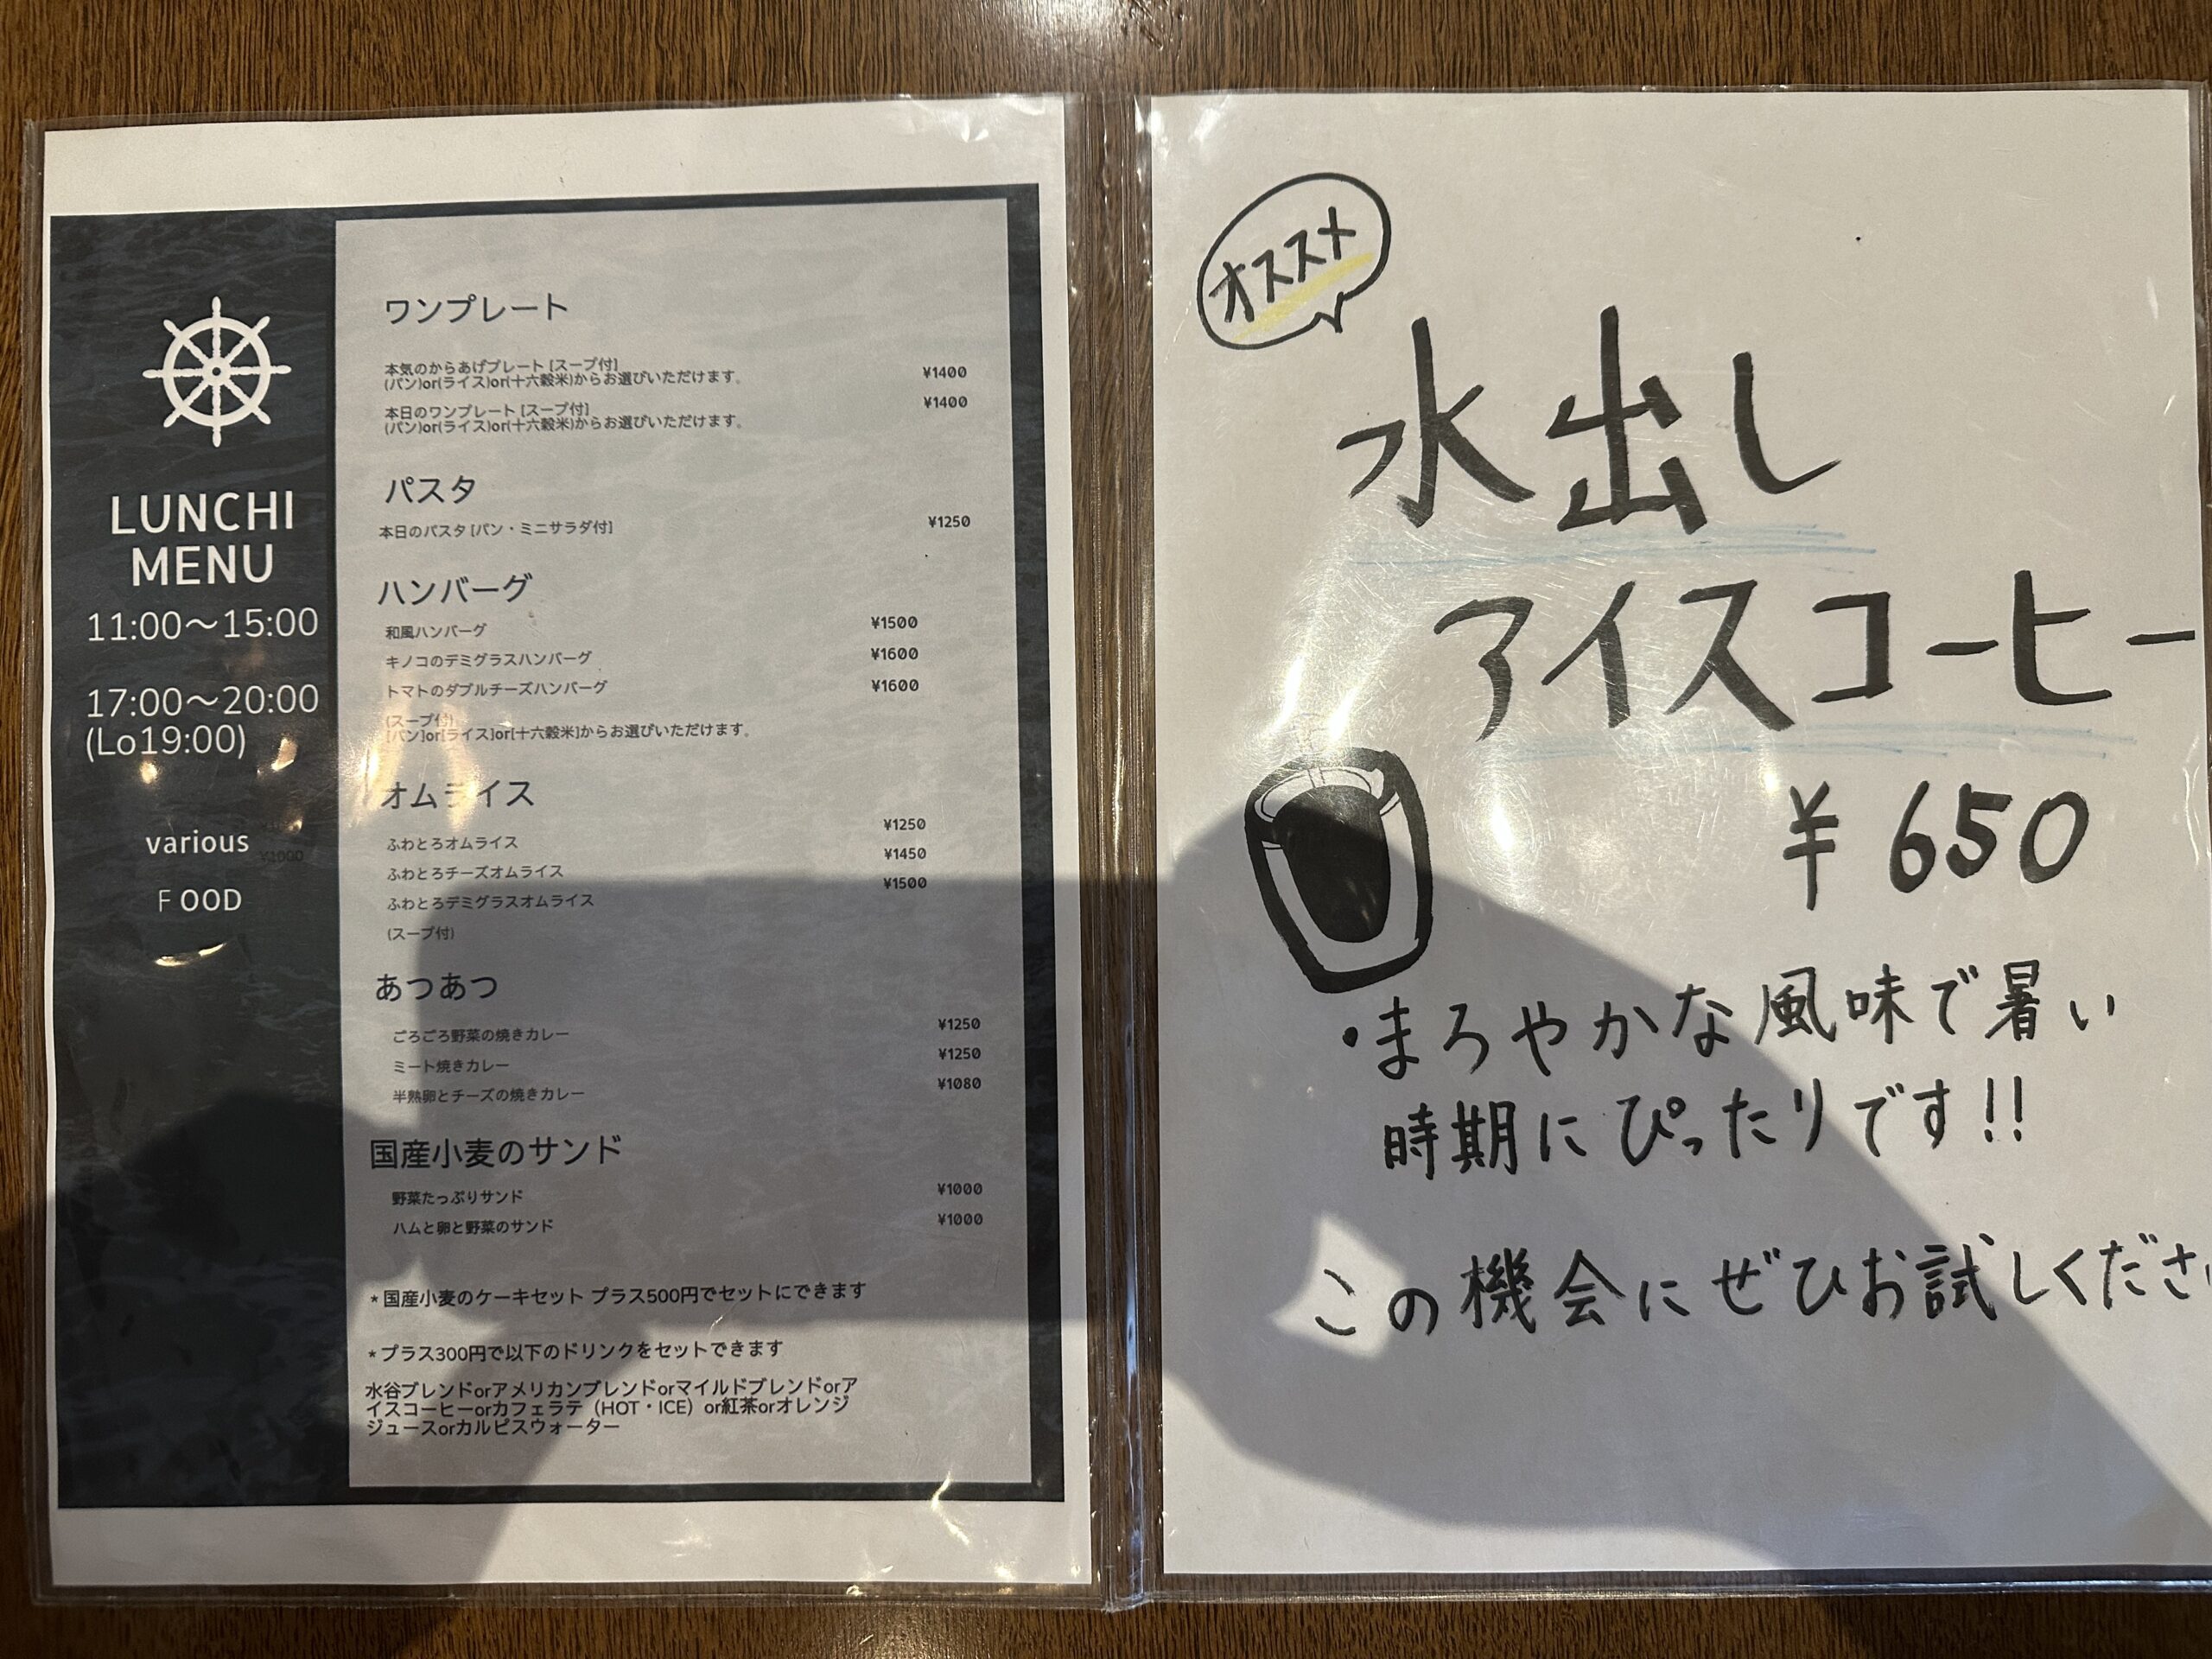 LUNCHI
MENU
11:00〜15:00
17:00〜20:00
(Lo19:00)
various
¥1000
F OOD
ワンプレート
本気のからあげプレート [スープ付] ¥1400
(パン)or(ライス)or(十六穀米)からお選びいただけます。
本日のワンプレート [スープ付] ¥1400
(パン)or(ライス)or(十六穀米)からお選びいただけます。
パスタ
本日のパスタ [パン・ミニサラダ付] ¥1250
ハンバーグ
和風ハンバーグ ¥1500
キノコのデミグラスハンバーグ ¥1600
トマトのダブルチーズハンバーグ ¥1600
(スープ付)
[パン]or[ライス]or[十六穀米]からお選びいただけます。
オムライス
ふわとろオムライス ¥1250
ふわとろチーズオムライス ¥1450
ふわとろデミグラスオムライス ¥1500
(スープ付)
あつあつ
ごろごろ野菜の焼きカレー ¥1250
ミート焼きカレー ¥1250
半熟卵とチーズの焼きカレー ¥1080
国産小麦のサンド
野菜たっぷりサンド ¥1000
ハムと卵と野菜のサンド ¥1000
*国産小麦のケーキセット プラス500円でセットにできます
*プラス300円で以下のドリンクをセットできます
水谷ブレンドorアメリカンブレンドorマイルドブレンドorア
イスコーヒーorカフェラテ（HOT・ICE）or紅茶orオレンジ
ジュースorカルピスウォーター
オススメ
水出し
アイスコーヒー
¥650
・まろやかな風味で暑い
時期にぴったりです!!
この機会にぜひお試しくださ